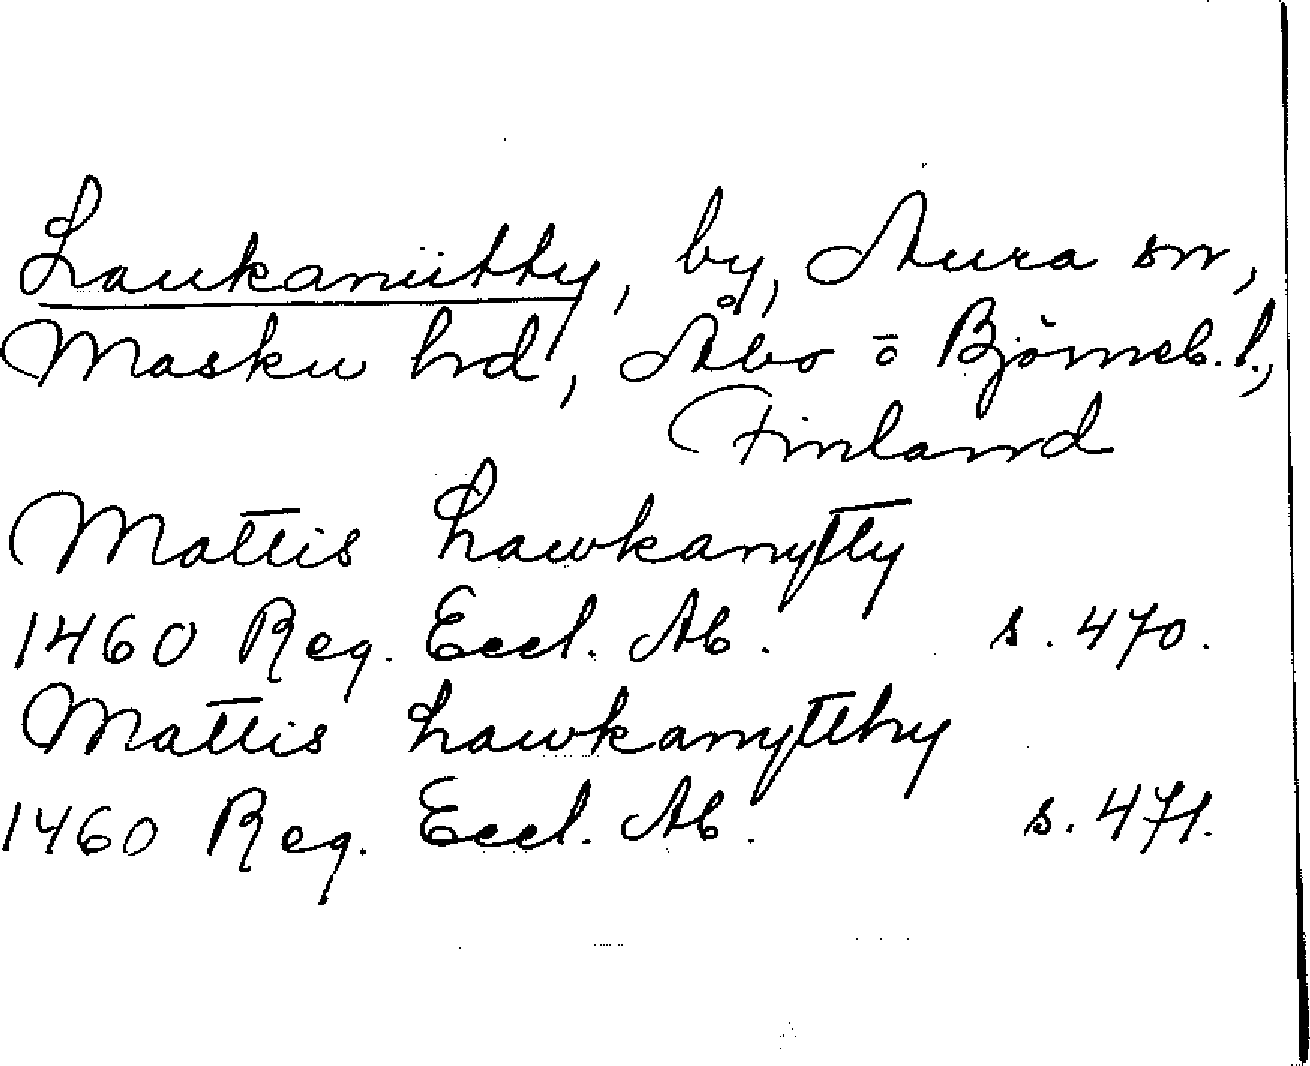 Laukaniitty, by, Aura sn,
Masku hd, Åbo o Björneb. l.,
Finland
Mattis Lawkanytty
1460 Reg. Eccl. Ab. s. 470.
Mattis Lawkanytthy
1460 Reg. Eccl. Ab. s. 471.